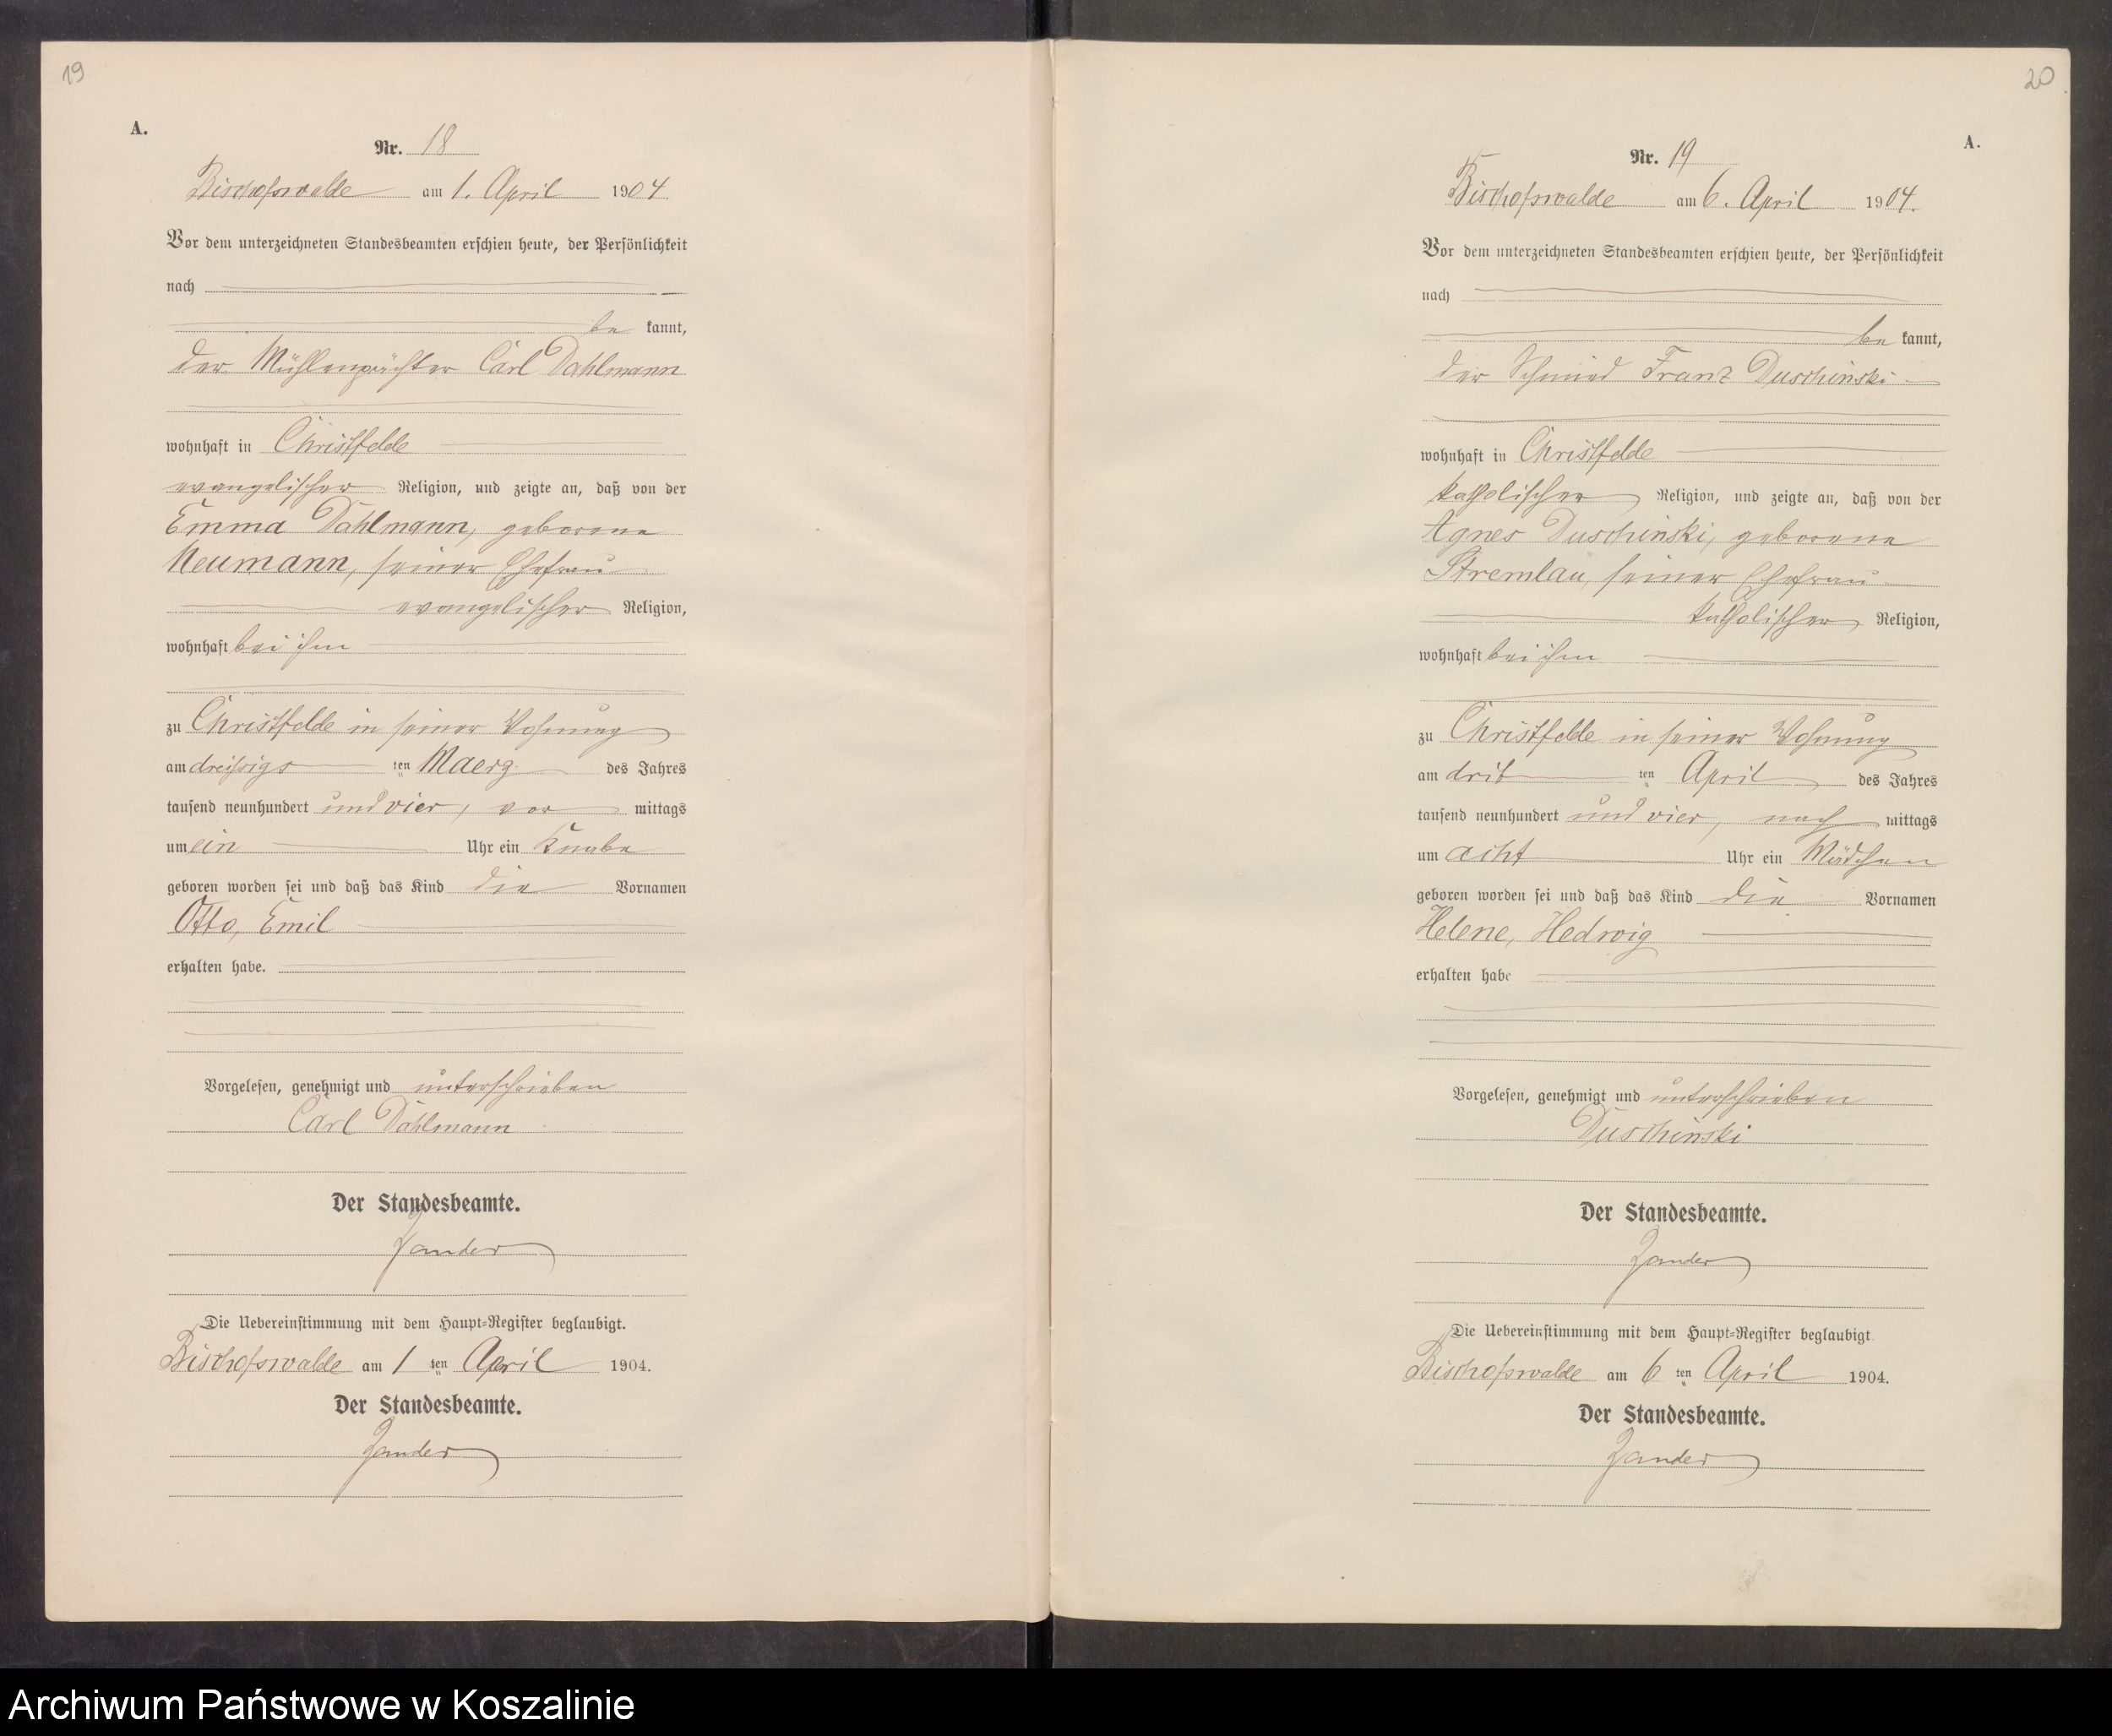 19
A.
Nr. 18
Bischofswalde am 1. April 1904
Vor dem unterzeichneten Standesbeamten erschien heute, der Persönlichkeit
nach
be kannt,
der Mühlenpächter Carl Dahlmann
wohnhaft in Christfelde
evangelischer Religion, und zeigte an, daß von der
Emma Dahlmann, geborene
Neumann, seiner Ehefrau
evangelischer Religion,
wohnhaft bei ihm
zu Christfelde in seiner Wohnung
am dreißigs ten Maerz des Jahres
tausend neunhundert und vier, vor mittags
um ein Uhr ein Knabe
geboren worden sei und daß das Kind die Vornamen
Otto, Emil
erhalten habe.
Vorgelesen, genehmigt und unterschrieben
Carl Dahlmann
Der Standesbeamte.
Zander
Die Uebereinstimmung mit dem Haupt-Register beglaubigt.
Bischofswalde am 1 ten April 1904.
Der Standesbeamte.
Zander
20
A.
Nr. 19
Bischofswalde am 6. April 1904.
Vor dem unterzeichneten Standesbeamten erschien heute, der Persönlichkeit
nach
be kannt,
der Schmied Franz Duschinski
wohnhaft in Christfelde
katholischer Religion, und zeigte an, daß von der
Agnes Duschinski, geborene
Stremlau, seiner Ehefrau
katholischer Religion,
wohnhaft bei ihm
zu Christfelde in seiner Wohnung
am drit ten April des Jahres
tausend neunhundert und vier, nach mittags
um acht Uhr ein Mädchen
geboren worden sei und daß das Kind die Vornamen
Helene, Hedwig
erhalten habe
Vorgelesen, genehmigt und unterschrieben
Duschinski
Der Standesbeamte.
Zander
Die Uebereinstimmung mit dem Haupt-Register beglaubigt.
Bischofswalde am 6 ten April 1904.
Der Standesbeamte.
Zander
Archiwum Państwowe w Koszalinie